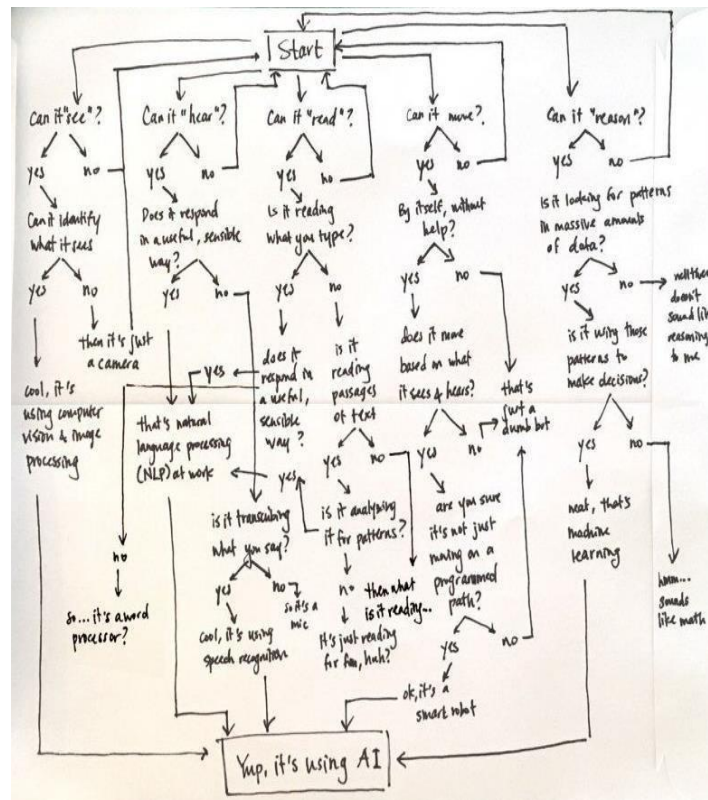 Start
Can it "see"?
yes
no
Can it identify
what it sees
yes
no
then it's just
a camera
cool, it's
using computer
vision & image
processing
Can it "hear"?
yes
no
Does it respond
in a useful, sensible
way?
yes
no
that's natural
language processing
(NLP) at work
is it transcribing
what you say?
yes
no
so it's a
mic
Cool, it's using
speech recognition
Can it "read"?
yes
no
Is it reading
what you type?
yes
no
does it
respond in
a useful,
sensible
way?
yes
no
so... it's a word
processor?
is it
reading
passages
of text
yes
no
then what
is it reading...
is it analyzing
it for patterns?
yes
no
It's just reading
for fun, huh?
Can it move?
yes
no
By itself, without
help?
yes
no
that's
just a
dumb bot
does it move
based on what
it sees & hears?
yes
no
are you sure
it's not just
moving on a
programmed
path?
yes
no
ok, it's a
smart robot
Can it "reason"?
yes
no
Is it looking for patterns
in massive amounts
of data?
yes
no
doesn't
sound like
reasoning
to me
is it using those
patterns to
make decisions?
yes
no
neat, that's
machine
learning
hmm...
sounds
like math
Yup, it's using AI